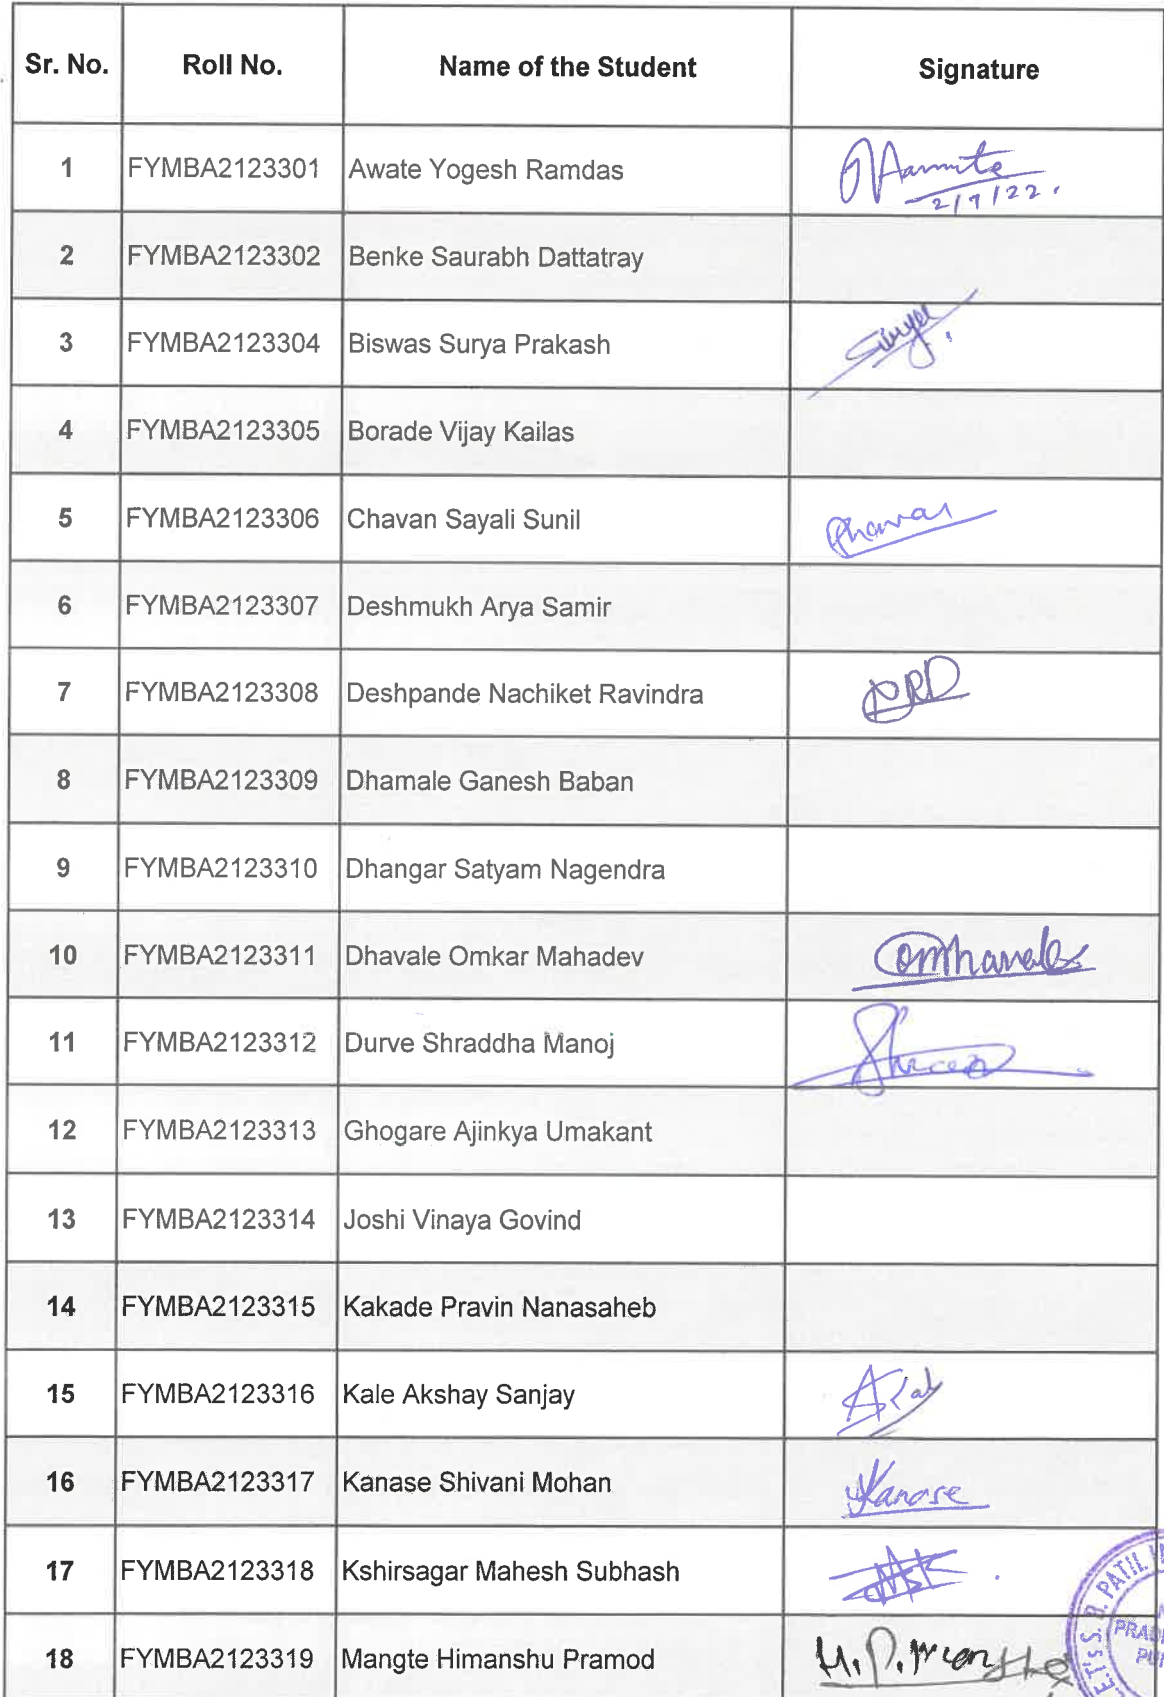 Sr. No. Roll No. Name of the Student Signature
1 FYMBA2123301 Awate Yogesh Ramdas
2/9/22.
2 FYMBA2123302 Benke Saurabh Dattatray
3 FYMBA2123304 Biswas Surya Prakash Surya
4 FYMBA2123305 Borade Vijay Kailas
5 FYMBA2123306 Chavan Sayali Sunil
6 FYMBA2123307 Deshmukh Arya Samir
7 FYMBA2123308 Deshpande Nachiket Ravindra NRD
8 FYMBA2123309 Dhamale Ganesh Baban
9 FYMBA2123310 Dhangar Satyam Nagendra
10 FYMBA2123311 Dhavale Omkar Mahadev
11 FYMBA2123312 Durve Shraddha Manoj
12 FYMBA2123313 Ghogare Ajinkya Umakant
13 FYMBA2123314 Joshi Vinaya Govind
14 FYMBA2123315 Kakade Pravin Nanasaheb
15 FYMBA2123316 Kale Akshay Sanjay
16 FYMBA2123317 Kanase Shivani Mohan Kanase
17 FYMBA2123318 Kshirsagar Mahesh Subhash
18 FYMBA2123319 Mangte Himanshu Pramod H.P.
S. B. PATIL